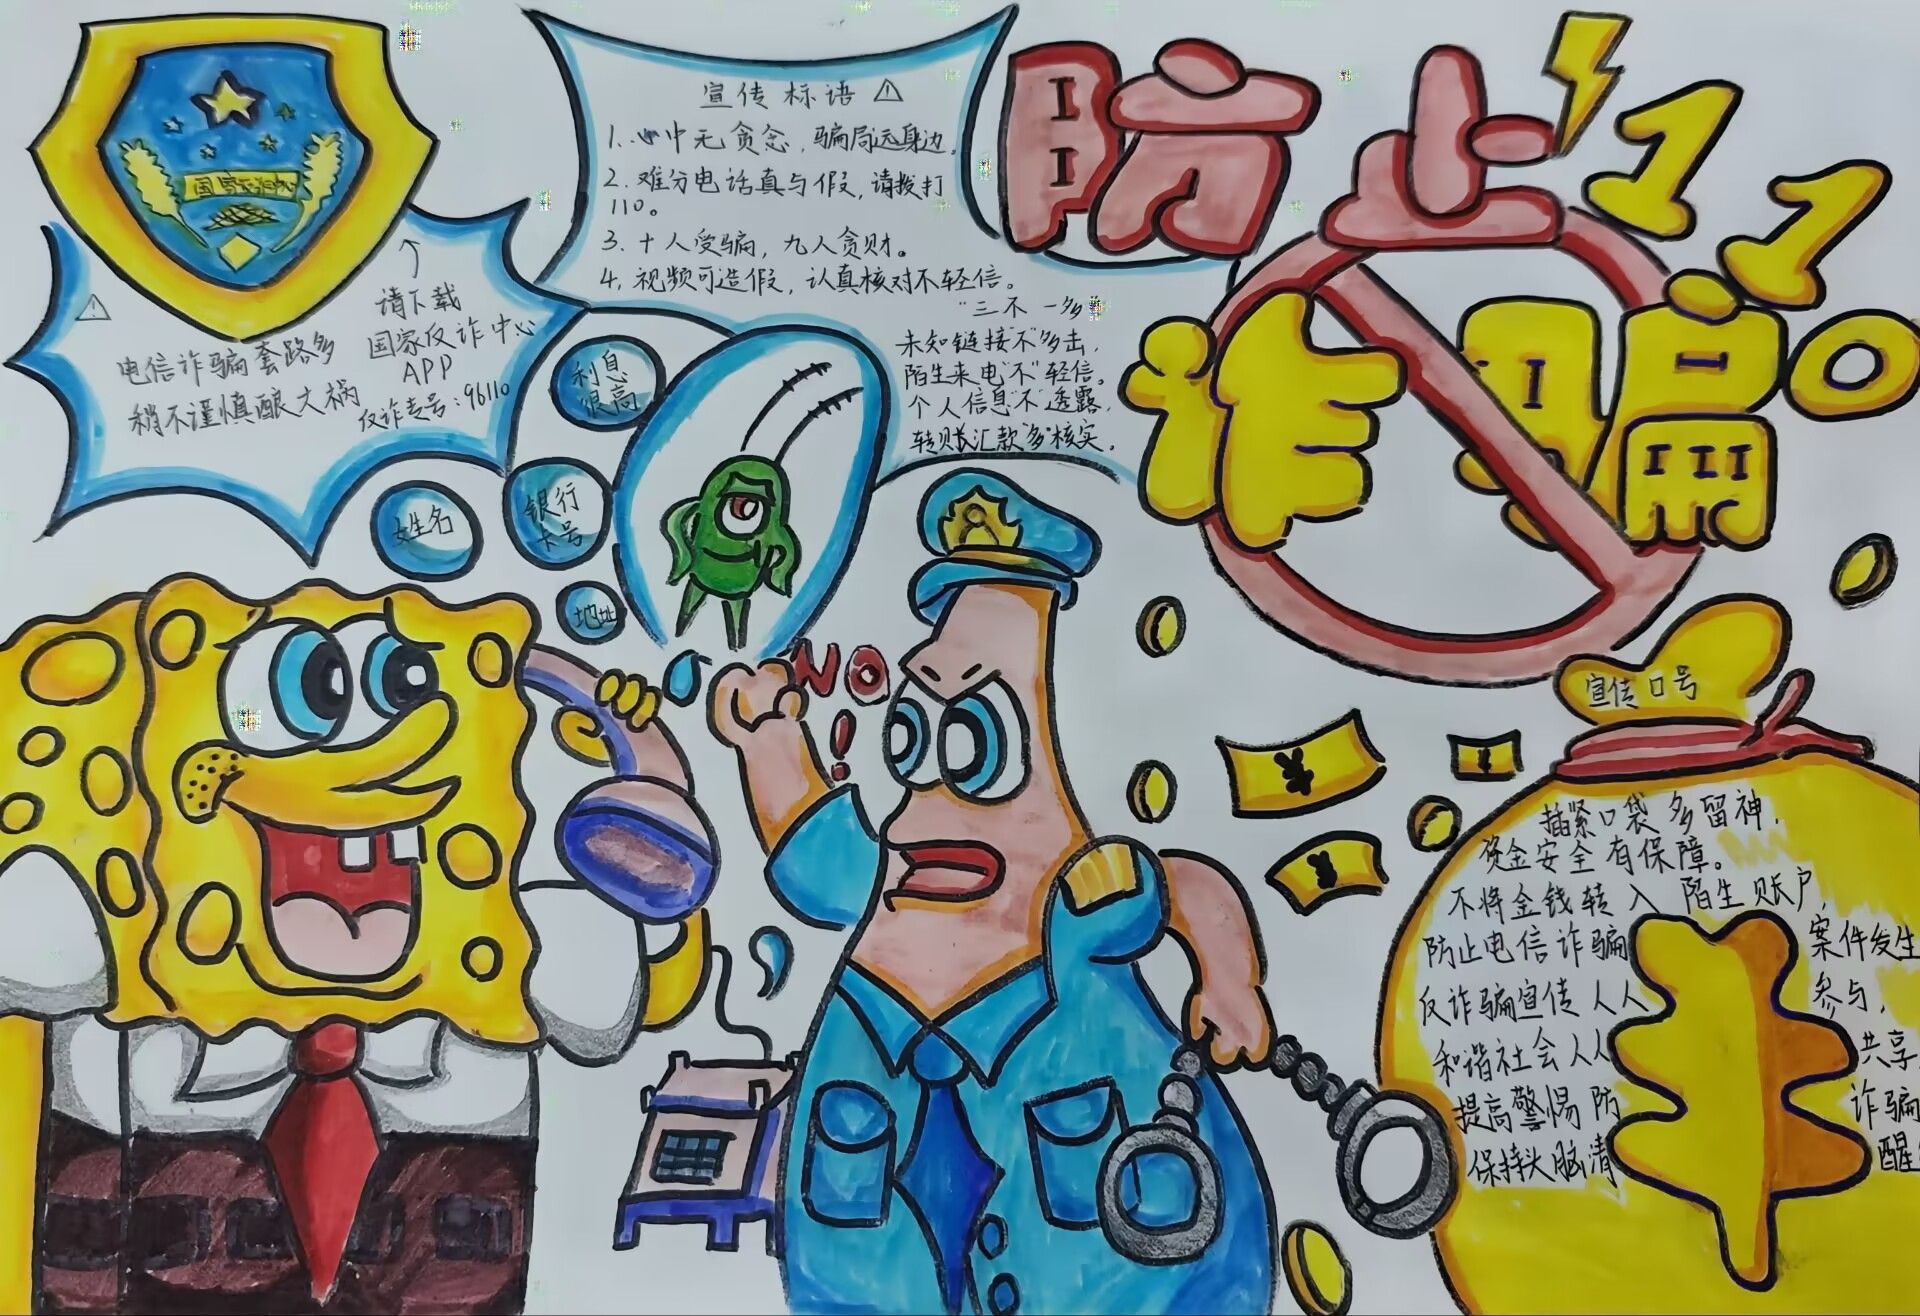 宣传标语
1.心中无贪念,骗局远身边。
2.难分电话真与假,请拨打
110。
3.十人受骗,九人贪财。
4.视频可造假,认真核对不轻信。
"三不一多"
未知链接"不"多击,
陌生来电"不"轻信。
个人信息"不"透露,
转账汇款"多"核实。
防止
诈骗
110
国家反诈中心
请下载
国家反诈中心
APP
反诈专号:96110
电信诈骗套路多
稍不谨慎酿大祸
利息
很高
银行
卡号
姓名
地址
NO!
宣传口号
插紧口袋多留神,
资金安全有保障。
不将金钱转入陌生账户,
防止电信诈骗 案件发生
反诈骗宣传人人 参与,
和谐社会人人 共享
提高警惕防 诈骗
保持头脑清 醒
¥
¥